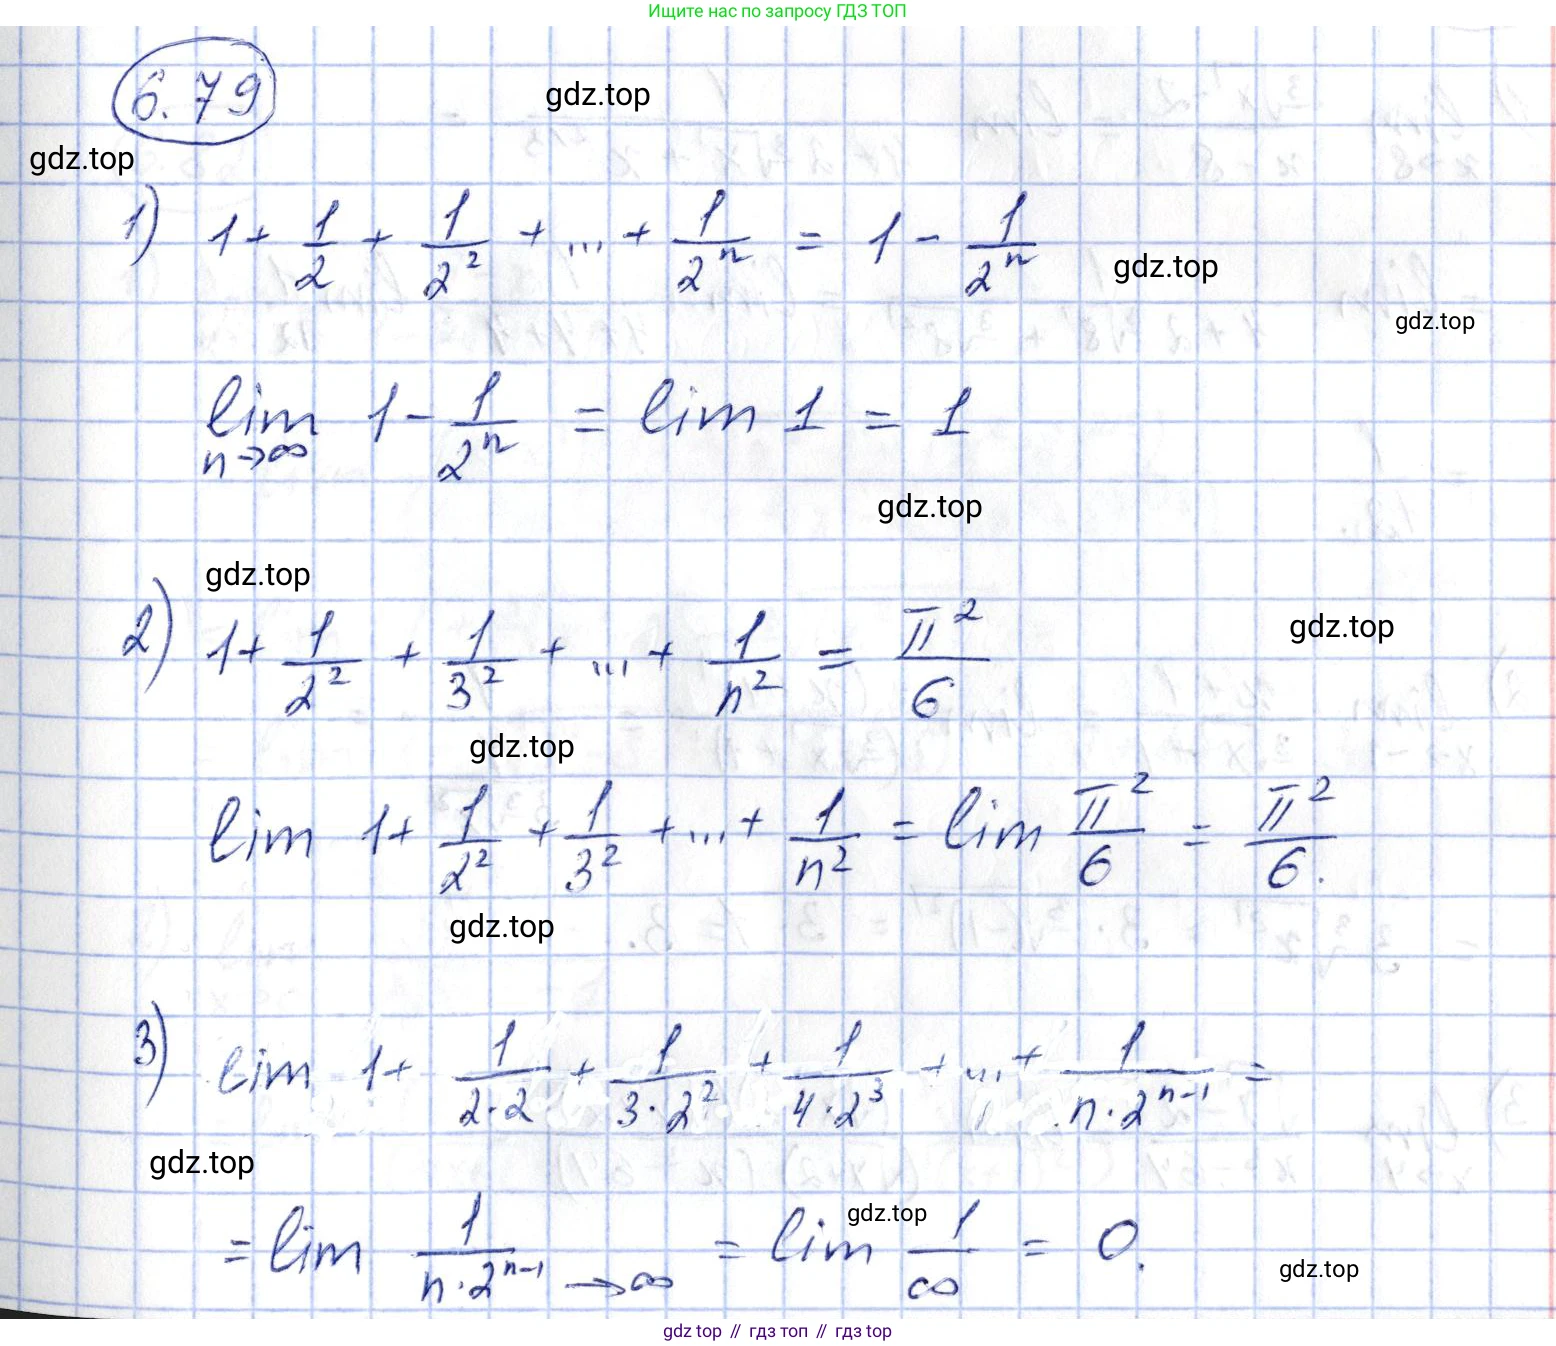 Ищите нас по запросу ГДЗ ТОП
6.79
gdz.top
gdz.top
1) 1 + 1/2 + 1/2² + ... + 1/2ⁿ = 1 - 1/2ⁿ
gdz.top
gdz.top
lim n→∞ 1 - 1/2ⁿ = lim 1 = 1
gdz.top
gdz.top
2) 1 + 1/2² + 1/3² + ... + 1/n² = π²/6
gdz.top
gdz.top
lim 1 + 1/2² + 1/3² + ... + 1/n² = lim π²/6 = π²/6.
gdz.top
3) lim 1 + 1/(2·2) + 1/(3·2²) + 1/(4·2³) + ... + 1/(n·2ⁿ⁻¹) =
gdz.top
= lim 1/(n·2ⁿ⁻¹) → ∞ = lim 1/∞ = 0.
gdz.top
gdz.top
gdz top // гдз топ // гдз top